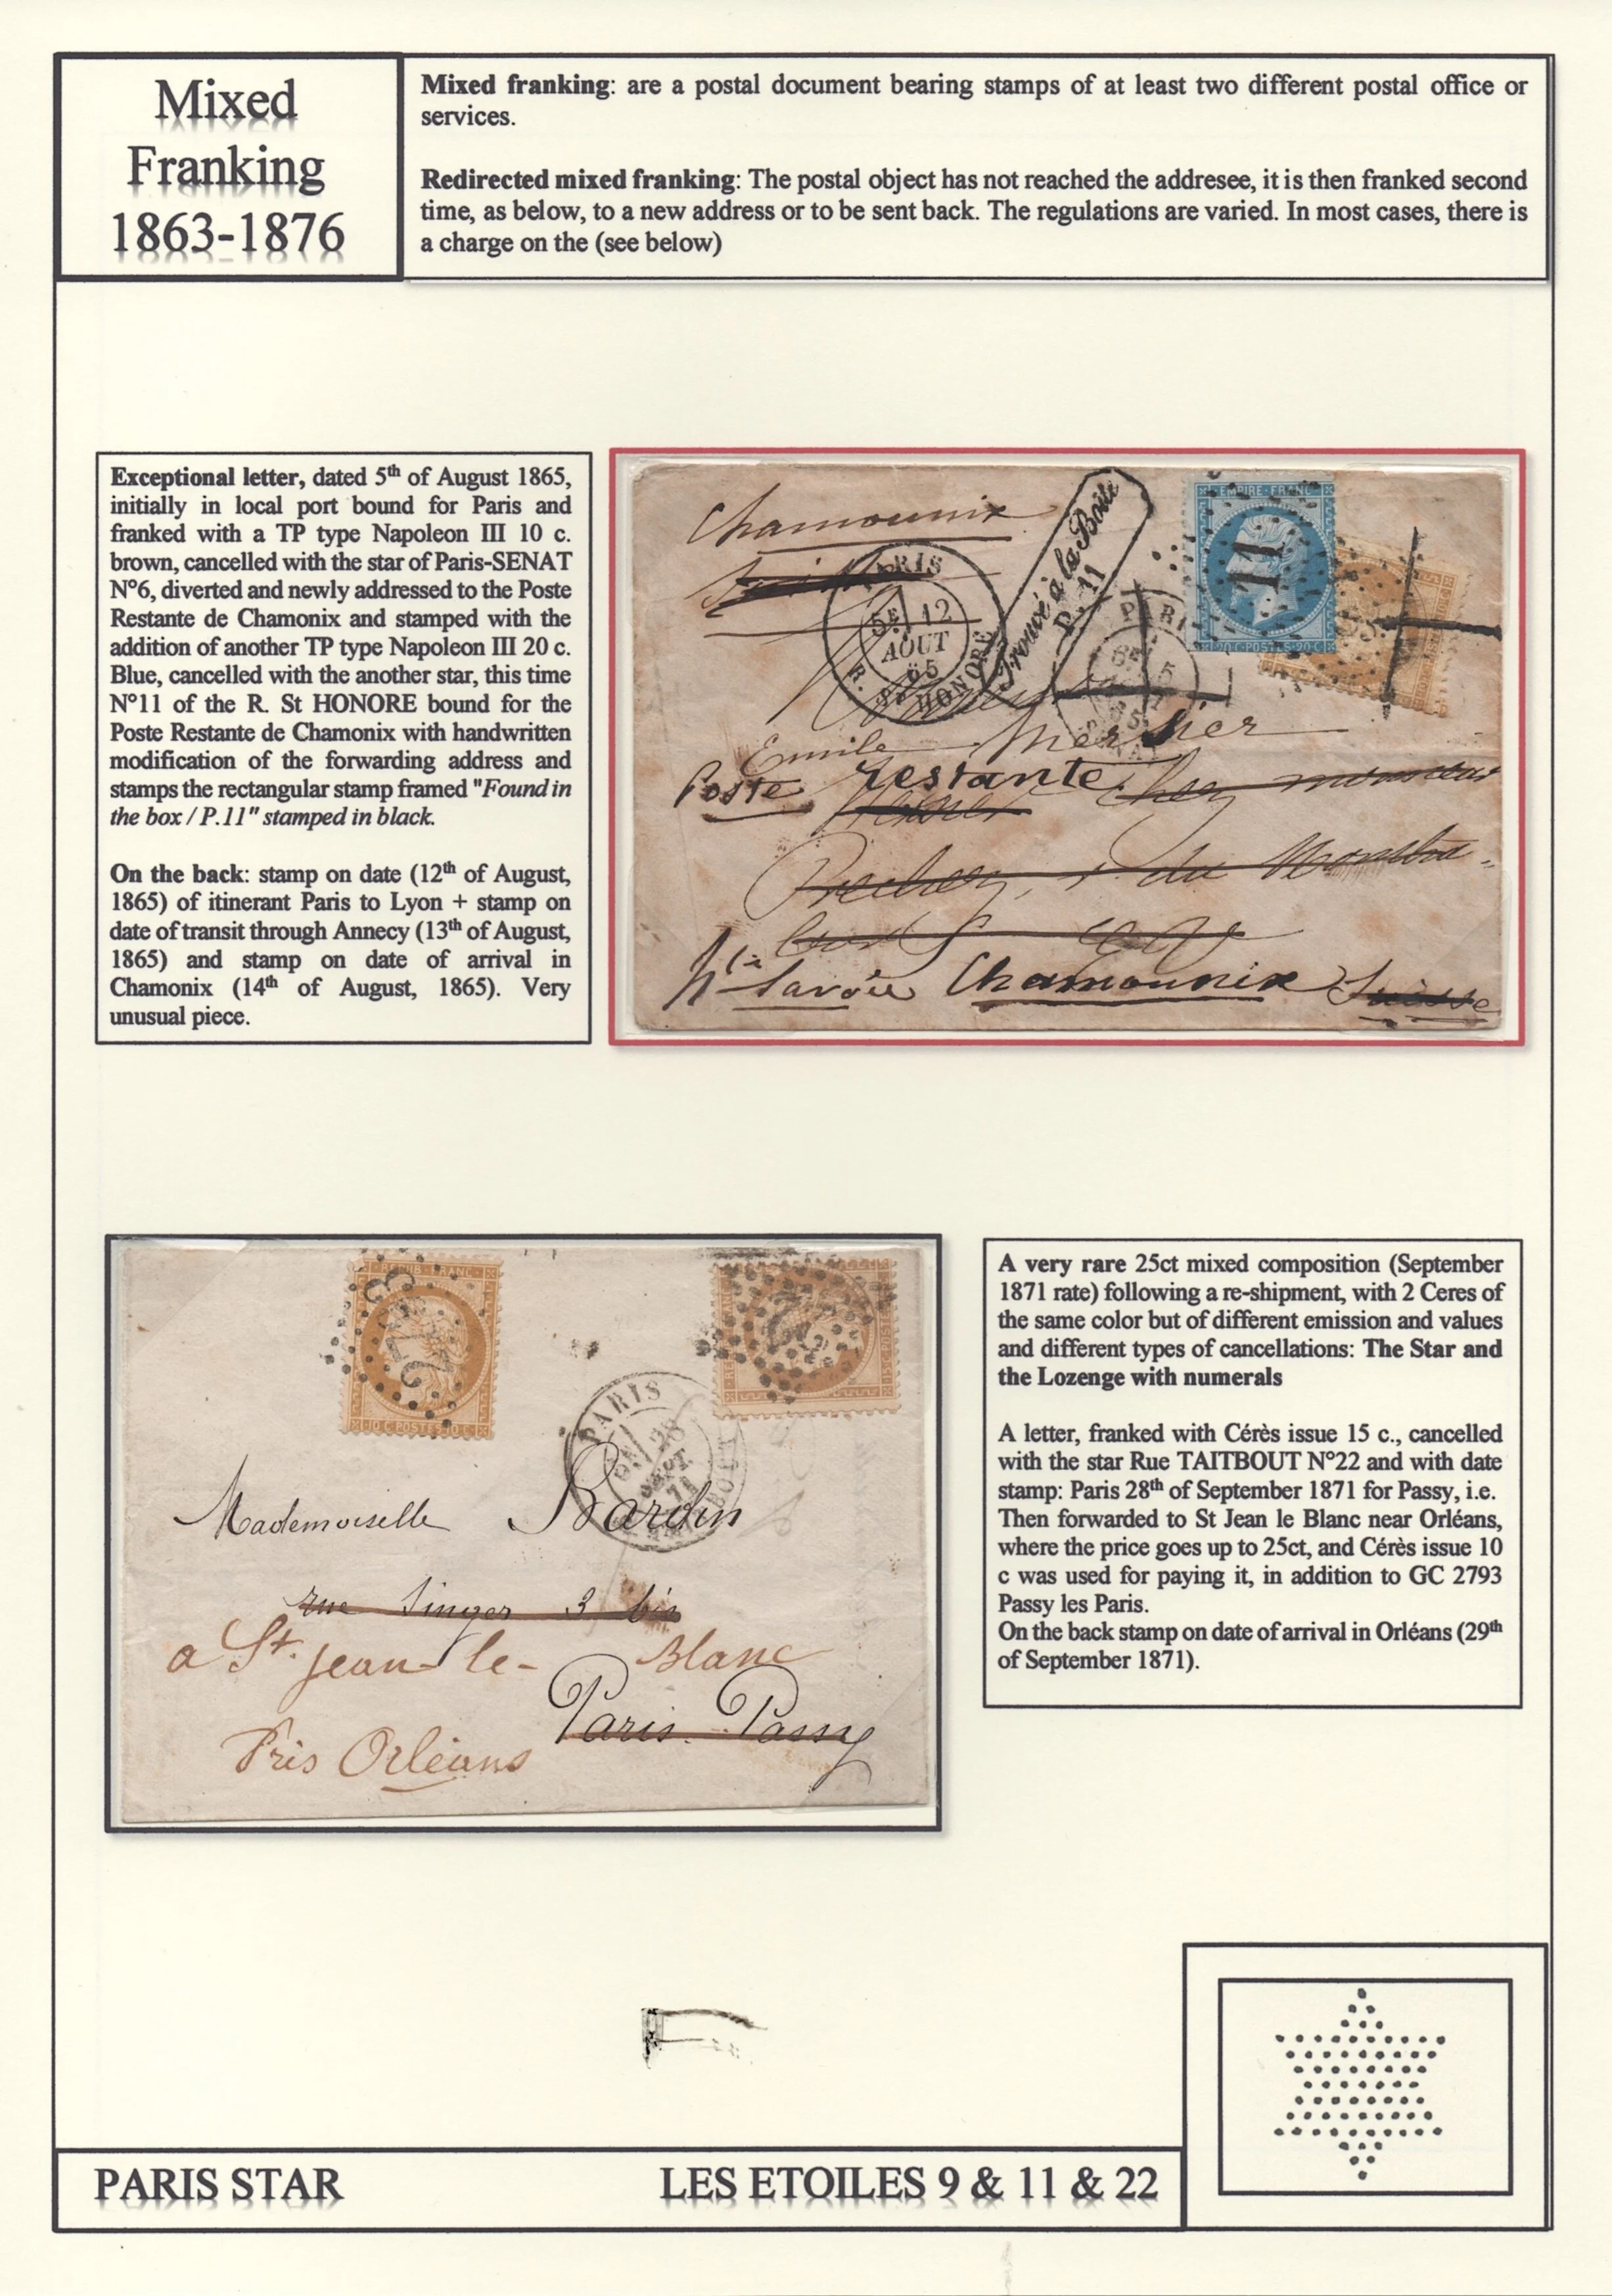 Mixed
Franking
1863-1876
Mixed franking: are a postal document bearing stamps of at least two different postal office or
services.
Redirected mixed franking: The postal object has not reached the addresee, it is then franked second
time, as below, to a new address or to be sent back. The regulations are varied. In most cases, there is
a charge on the (see below)
Exceptional letter, dated 5th of August 1865,
initially in local port bound for Paris and
franked with a TP type Napoleon III 10 c.
brown, cancelled with the star of Paris-SENAT
N°6, diverted and newly addressed to the Poste
Restante de Chamonix and stamped with the
addition of another TP type Napoleon III 20 c.
Blue, cancelled with the another star, this time
N°11 of the R. St HONORE bound for the
Poste Restante de Chamonix with handwritten
modification of the forwarding address and
stamps the rectangular stamp framed "Found in
the box / P.11" stamped in black.
On the back: stamp on date (12th of August,
1865) of itinerant Paris to Lyon + stamp on
date of transit through Annecy (13th of August,
1865) and stamp on date of arrival in
Chamonix (14th of August, 1865). Very
unusual piece.
Chamounix
PARIS
5E 12
AOUT
65
R. ST HONORE
Trouvé à la Boite
P. 11
EMPIRE FRANC
11
20 C POSTES 20 C
PARI
5
65
Emile Mercier
Poste restante chez monsieur
du
hte Savoie Chamounix Suisse
REPUB FRANC
2793
10 C POSTES 10 C
22
15 C POSTES
PARIS
28
SEPT
71
Mademoiselle Bardin
rue Singer 3 bis
a St. Jean-le-Blanc
Paris-Passy
Près Orléans
A very rare 25ct mixed composition (September
1871 rate) following a re-shipment, with 2 Ceres of
the same color but of different emission and values
and different types of cancellations: The Star and
the Lozenge with numerals
A letter, franked with Cérès issue 15 c., cancelled
with the star Rue TAITBOUT N°22 and with date
stamp: Paris 28th of September 1871 for Passy, i.e.
Then forwarded to St Jean le Blanc near Orléans,
where the price goes up to 25ct, and Cérès issue 10
c was used for paying it, in addition to GC 2793
Passy les Paris.
On the back stamp on date of arrival in Orléans (29th
of September 1871).
PARIS STAR
LES ETOILES 9 & 11 & 22